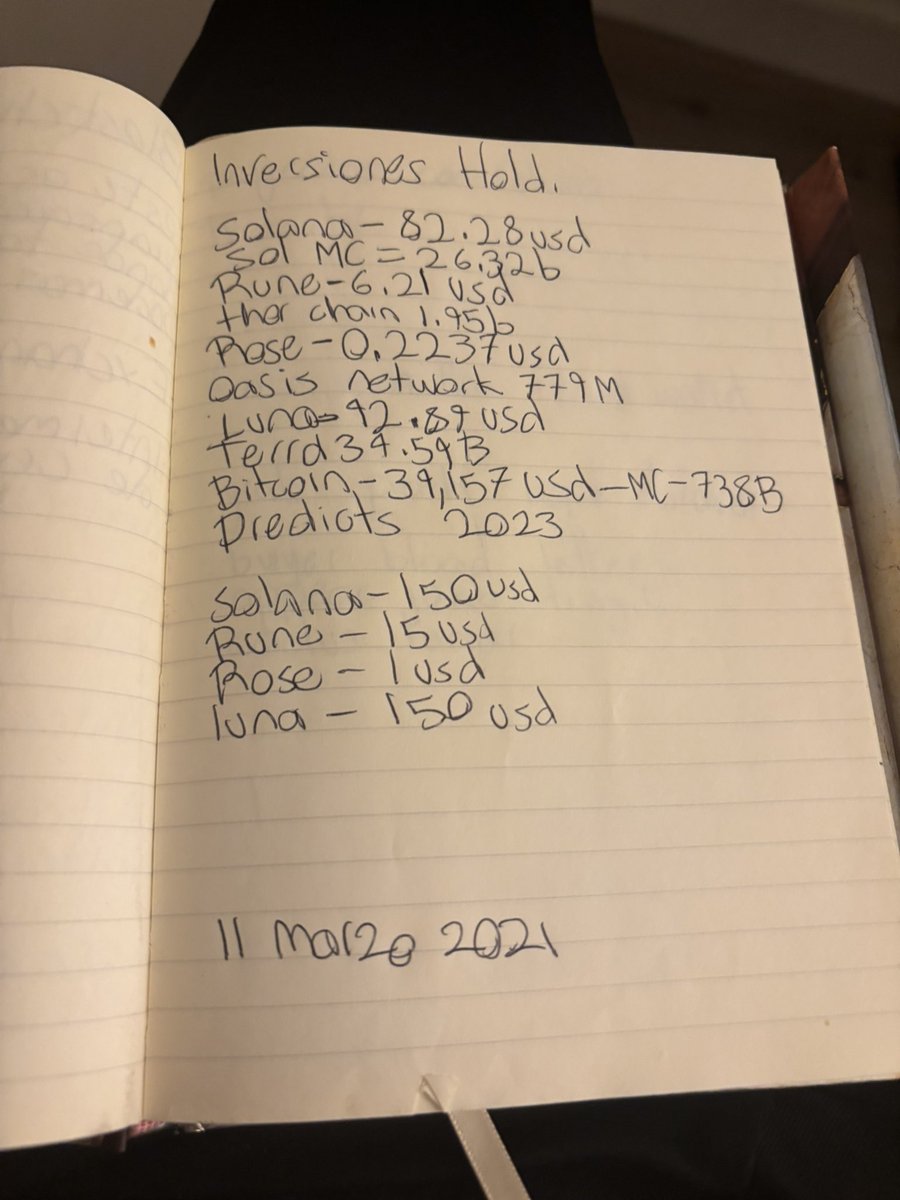 Inversiones Hold.
Solana - 82.28 usd
Sol MC = 26.32b
Rune - 6.21 usd
thor chain 1.95b
Rose - 0.2237 usd
Oasis network 779M
Luna - 92.89 usd
Terra 34.59B
Bitcoin - 39,157 usd - MC - 738B
Predicts 2023
Solana - 150 usd
Rune - 15 usd
Rose - 1 usd
luna - 150 usd
11 Marzo 2021